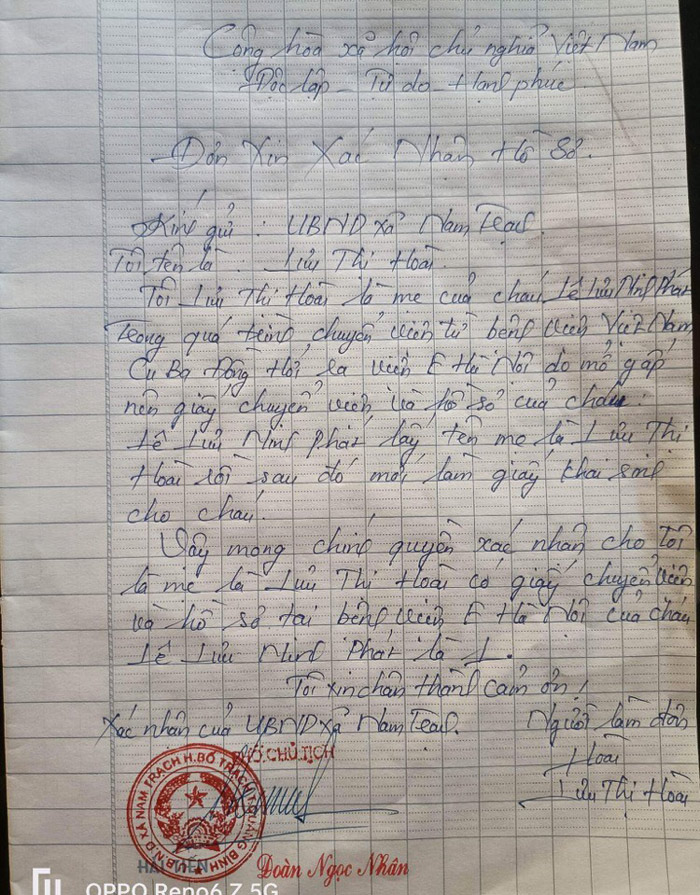 Cộng hòa xã hội chủ nghĩa Việt Nam
Độc lập - Tự do - Hạnh phúc
Đơn Xin Xác Nhận Hồ Sơ.
Kính gửi : UBND xã Nam Trạch.
Tôi tên là : Lưu Thị Hoài
Tôi Lưu Thị Hoài là mẹ của cháu Lê Lưu Minh Phát
Trong quá trình chuyển viện từ bệnh viện Việt Nam
Cu Ba Đồng Hới ra viện E Hà Nội do mổ gấp
nên giấy chuyển viện và hồ sơ của cháu :
Lê Lưu Minh Phát lấy tên mẹ là Lưu Thị
Hoài rồi sau đó mới làm giấy khai sinh
cho cháu.
Vậy mong chính quyền xác nhận cho Tôi
là mẹ là Lưu Thị Hoài có giấy chuyển viện
và hồ sơ tại bệnh viện E Hà Nội của cháu
Lê Lưu Minh Phát là 1.
Tôi xin chân thành cảm ơn!
Xác nhận của UBND xã Nam Trạch. Người làm đơn
PHÓ CHỦ TỊCH
Hoài
Lưu Thị Hoài
U.B.N.D XÃ NAM TRẠCH H.BỐ TRẠCH QUẢNG BÌNH
Đoàn Ngọc Nhân
OPPO Reno6 Z 5G